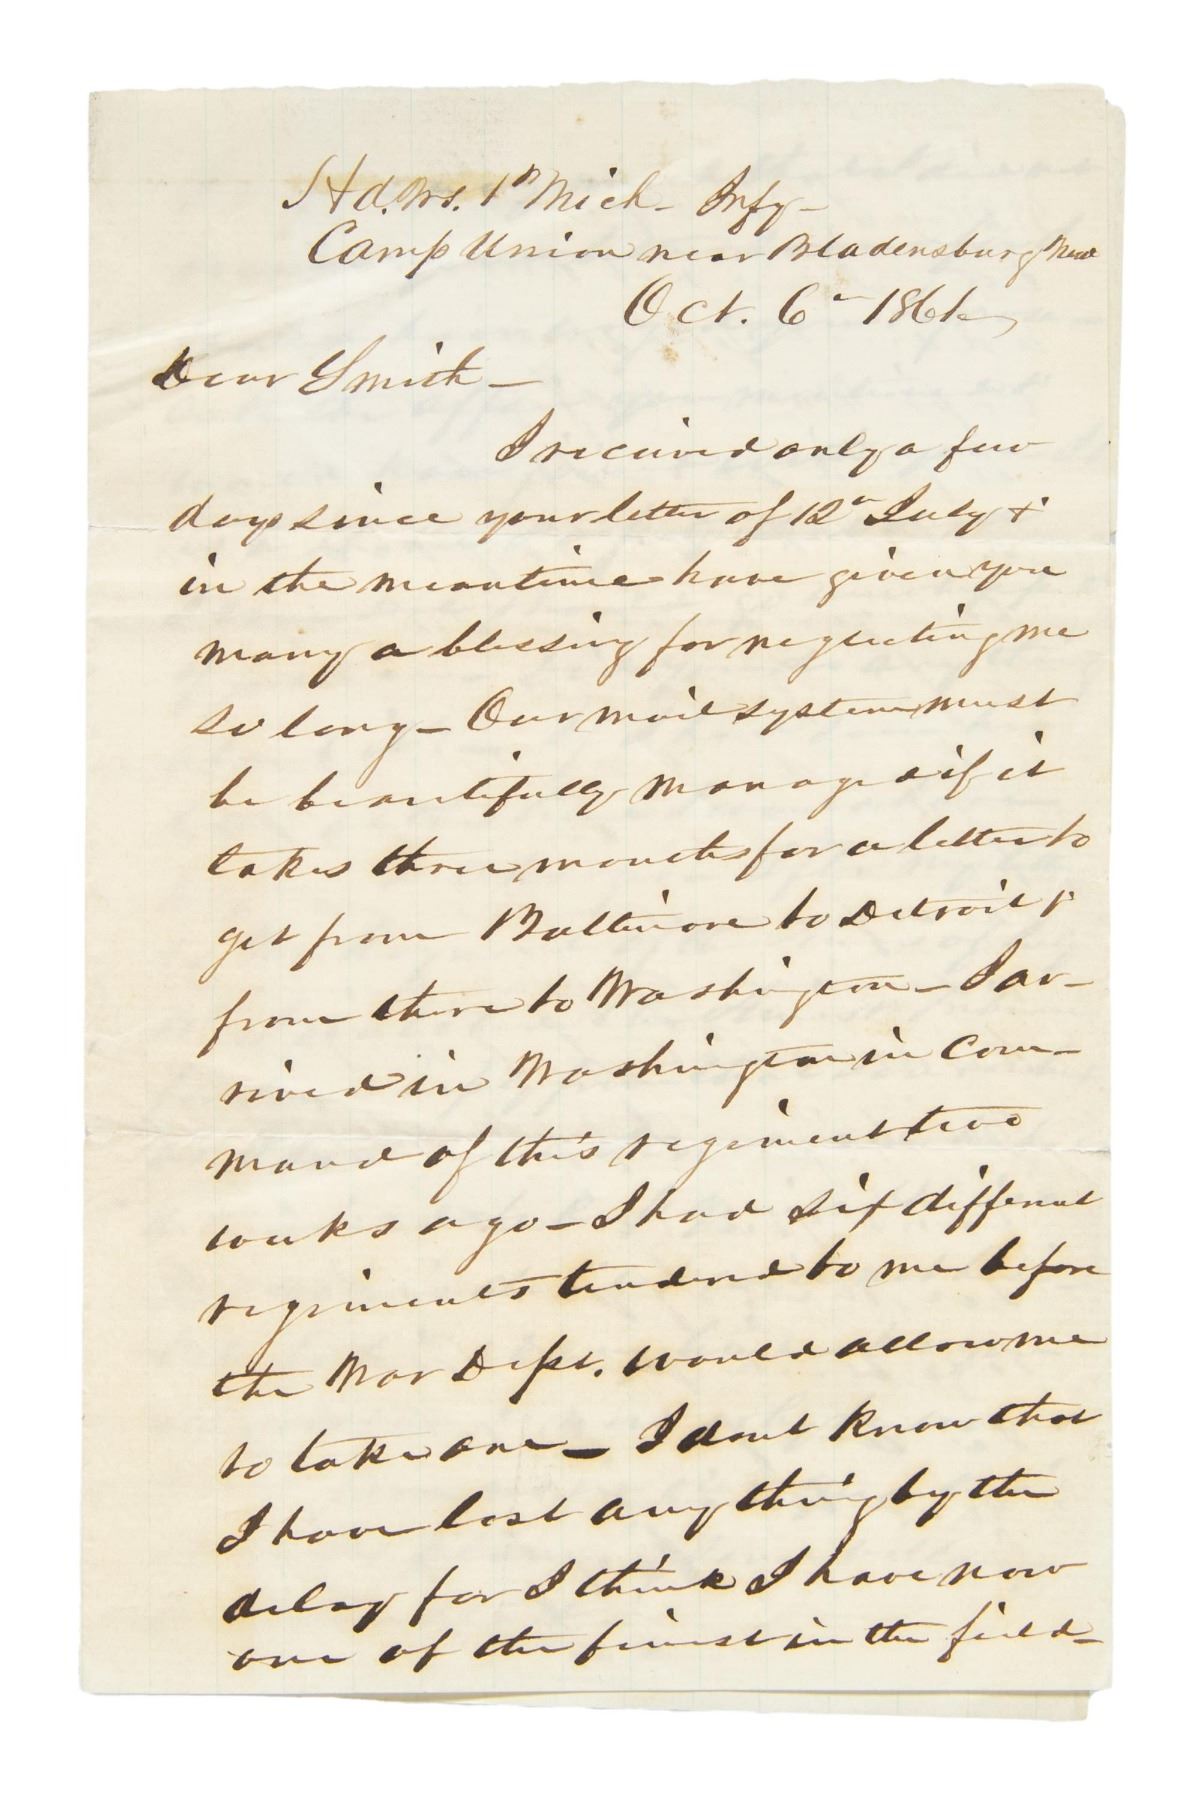 Hd. Qrs. 1st Mich- Infy-
Camp Union near Bladensburg Md
Oct. 6th 1861
Dear Smith-
I received only a few
days since your letter of 12th July &
in the meantime have given you
many a blessing for neglecting me
so long- Our mail system must
be beautifully managed if it
takes three months for a letter to
get from Baltimore to Detroit &
from there to Washington- I ar-
rived in Washington in com-
mand of this regiment two
weeks ago- I had six different
regiments tendered to me before
the War Dept. would allow me
to take one- I dont know that
I have lost any thing by the
delay for I think I have now
one of the finest in the field-